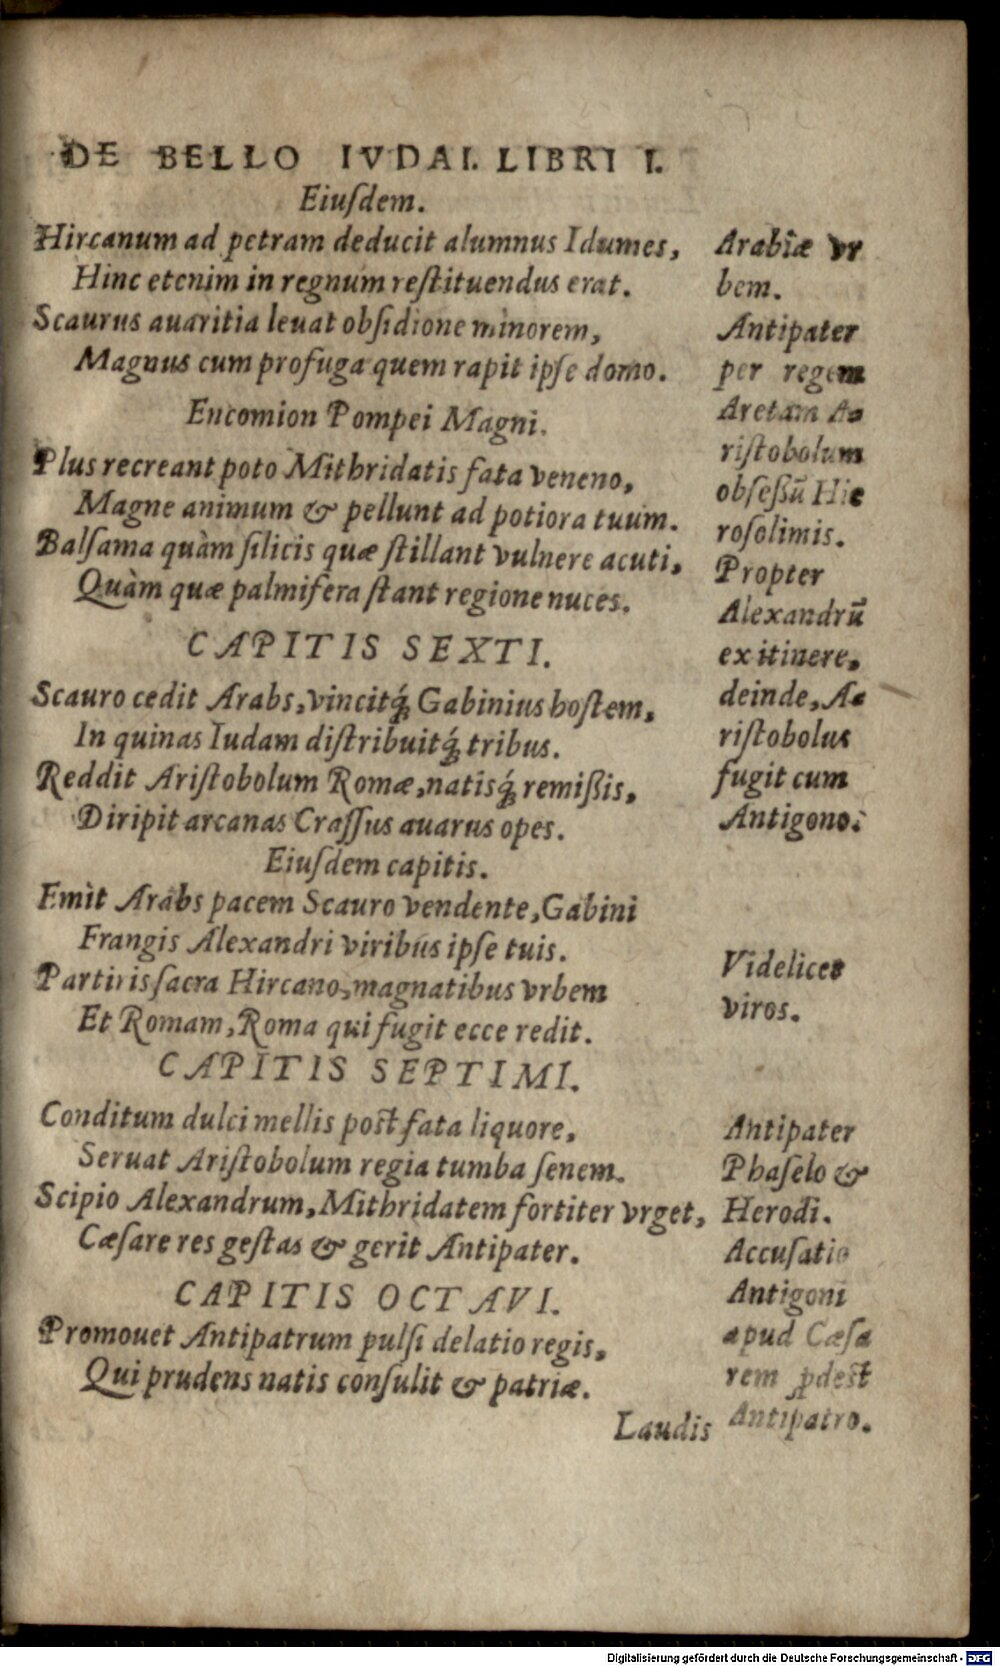 DE BELLO IVDAI. LIBRI I.
Eiuſdem.
Hircanum ad petram deducit alumnus Idumes,
Hinc etenim in regnum reſtituendus erat.
Scaurus auaritia leuat obſidione minorem,
Magnus cum profuga quem rapit ipſe domo.
Encomion Pompei Magni.
Plus recreant poto Mithridatis fata veneno,
Magne animum & pellunt ad potiora tuum.
Balſama quàm ſilicis quæ ſtillant vulnere acuti,
Quàm quæ palmifera ſtant regione nuces.
CAPITIS SEXTI.
Scauro cedit Arabs, vincitq́; Gabinius hoſtem,
In quinas Iudam diſtribuitq́; tribus.
Reddit Ariſtobolum Romæ, natisq́; remißis,
Diripit arcanas Craſſus auarus opes.
Eiuſdem capitis.
Emit Arabs pacem Scauro vendente, Gabini
Frangis Alexandri viribus ipſe tuis.
Partiris ſacra Hircano, magnatibus vrbem
Et Romam, Roma qui fugit ecce redit.
CAPITIS SEPTIMI.
Conditum dulci mellis poſt fata liquore,
Seruat Ariſtobolum regia tumba ſenem.
Scipio Alexandrum, Mithridatem fortiter vrget,
Cæſare res geſtas & gerit Antipater.
CAPITIS OCTAVI.
Promouet Antipatrum pulſi delatio regis,
Qui prudens natis conſulit & patriæ.
Laudis
Arabiæ vr
bem.
Antipater
per regem
Aretam A-
riſtobolum
obſeßũ Hie
roſolimis.
Propter
Alexandrũ
ex itinere,
deinde, A-
riſtobolus
fugit cum
Antigono.
Videlicet
viros.
Antipater
Phaſelo &
Herodi.
Accuſatio
Antigoni
apud Cæſa
rem ꝓdeſt
Antipatro.
Digitalisierung gefördert durch die Deutsche Forschungsgemeinschaft - DFG